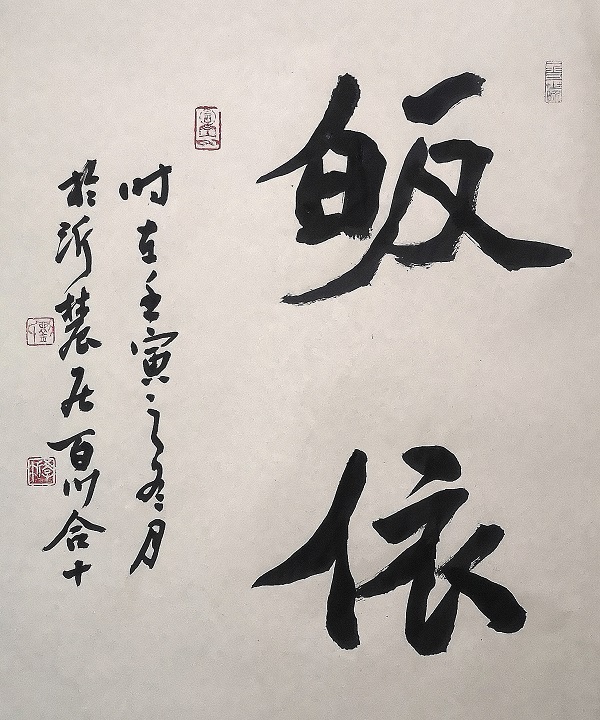 皈依
时在壬寅之冬月
於沂慧居百川合十